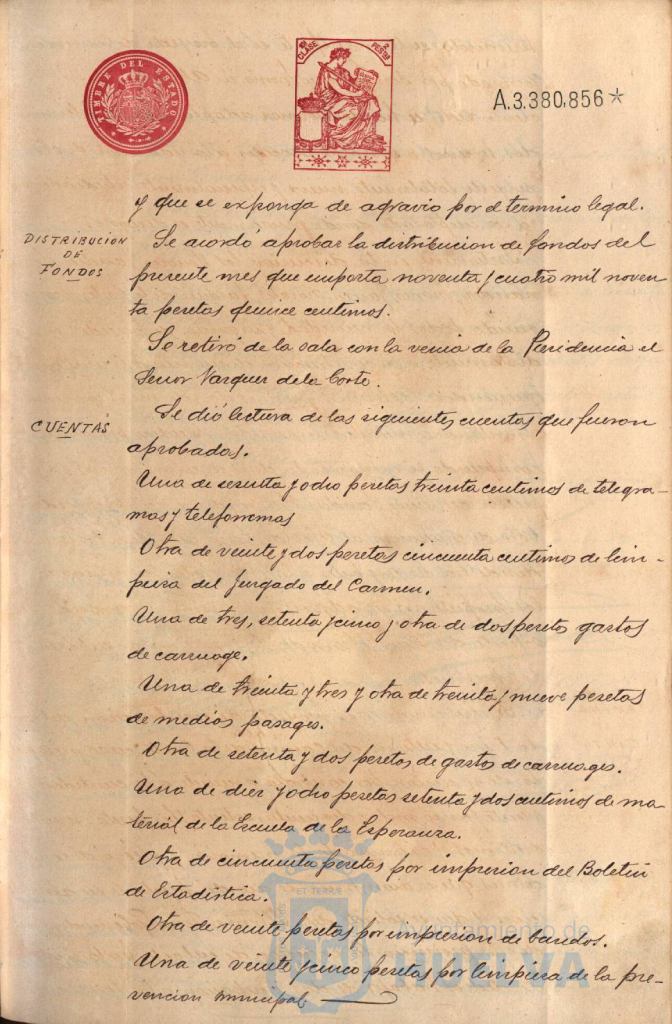 TIMBRE DEL ESTADO
10ª CLASE
2 PESTAS
A.3.380,856*
y que se exponga de agravio por el termino legal.
DISTRIBUCION
DE
FONDOS
Se acordó aprobar la distribucion de fondos del
presente mes que importa noventa y cuatro mil noven-
ta pesetas quince centimos.
Se retiró de la sala con la venia de la Presidencia el
Señor Vazquez de la Corte.
CUENTAS
Se dió lectura de las siguientes cuentas que fueron
aprobadas.
Una de sesenta y ocho pesetas treinta centimos de telegra-
mas y telefonemas
Otra de veinte y dos pesetas cincuenta centimos de lim-
pieza del Juzgado del Carmen.
Una de tres, setenta y cinco y otra de dos pesetas gastos
de carruage.
Una de treinta y tres y otra de treinta y nueve pesetas
de medios pasages.
Otra de setenta y dos pesetas de gastos de carruages.
Una de diez y ocho pesetas setenta y dos centimos de ma-
terial de la Escuela de la Esperanza.
Otra de cincuenta pesetas por impresion del Boletin
de Estadistica.
Otra de veinte pesetas por impresion de bandos.
Una de veinte y cinco pesetas por limpieza de la pre-
vencion municipal
Ayuntamiento de
HUELVA